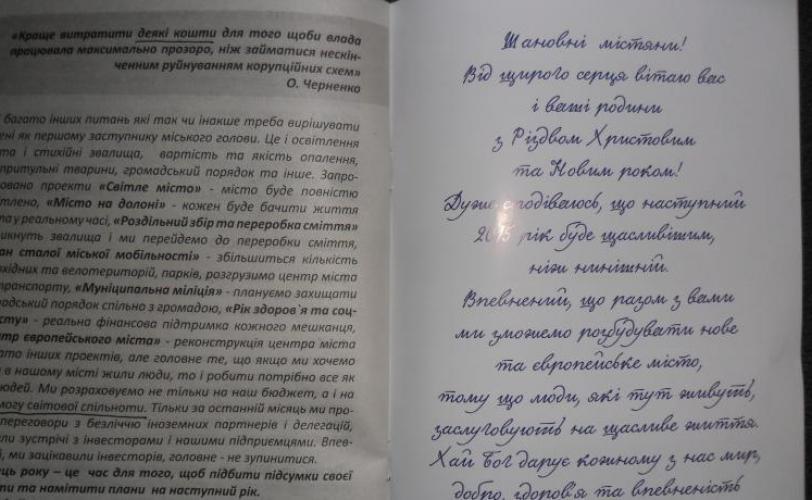 «Краще витратити деякі кошти для того щоби влада
працювала максимально прозоро, ніж займатися нескін-
ченним руйнуванням корупційних схем»
О. Черненко
багато інших питань які так чи інакше треба вирішувати
ені як першому заступнику міського голови. Це і освітлення
та і стихійні звалища, вартість та якість опалення,
притульні тварини, громадський порядок та інше. Запро-
овано проекти «Світле місто» - місто буде повністю
ітлено, «Місто на долоні» - кожен буде бачити життя
та у реальному часі, «Роздільний збір та переробка сміття»
икнуть звалища і ми перейдемо до переробки сміття,
ан сталої міської мобільності» - збільшиться кількість
охідних та велотериторій, парків, розгрузимо центр міста
транспорту, «Муніципальна міліція» - плануємо захищати
адський порядок спільно з громадою, «Рік здоров`я та соц-
сту» - реальна фінансова підтримка кожного мешканця,
нтр європейського міста» - реконструкція центра міста
ато інших проектів, але головне те, що якщо ми хочемо
в нашому місті жили люди, то і робити потрібно все як
юдей. Ми розраховуємо не тільки на наш бюджет, а і на
могу світової спільноти. Тільки за останній місяць ми про-
переговори з безліччю іноземних партнерів і делегацій,
ли зустрічі з інвесторами і нашими підприємцями. Впев-
й, ми зацікавили інвесторів, головне - не зупинитися.
ець року – це час для того, щоб підбити підсумки своєї
ти та намітити плани на наступний рік.
Шановні містяни!
Від щирого серця вітаю вас
і ваші родини
з Різдвом Христовим
та Новим роком!
Дуже сподіваюсь, що наступний
2015 рік буде щасливішим,
ніж нинішній.
Впевнений, що разом з вами
ми зможемо розбудувати нове
та європейське місто,
тому що люди, які тут живуть,
заслуговують на щасливе життя.
Хай Бог дарує кожному з нас мир,
добро, здоров'я та впевненість